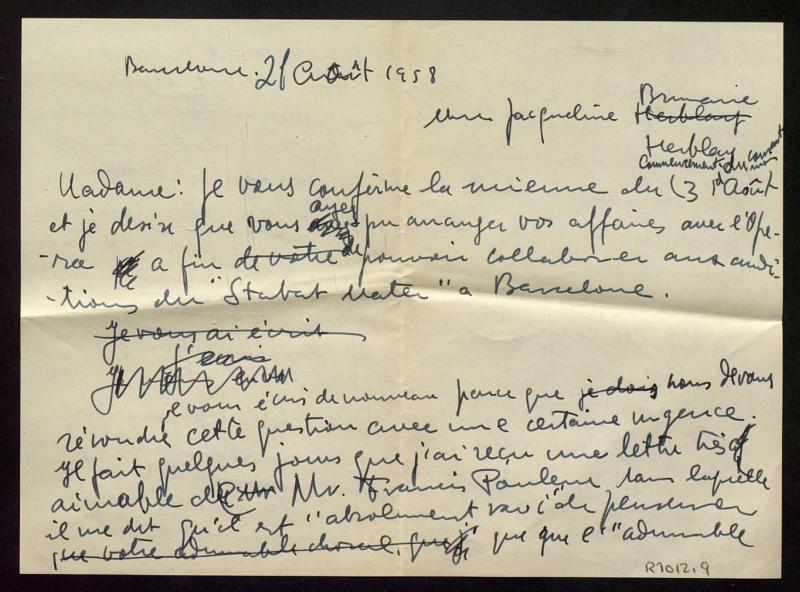 Barcelone. 21 Août 1958
Mme Jacqueline Brumaire
Herblay
Herblay
commencement du courant
Madame: Je vous confirme la mienne du 13 Août
et je desire que vous ayez pu arranger vos affaires avec l'Ope-
-ra a fin de votre de pouvoir collaborer aux audi-
-tions du "Stabat Mater" a Barcelone.
Je vous ai écrit
J'ecris
Je vous écris de nouveau parce que je dois nous devons
résoudre cette question avec une certaine urgence.
Il fait quelques jours que j'ai reçu une lettre très
aimable de Mr. Francis Poulenc dans laquelle
il me dit qu'il est "absolument ravi" de penser
que votre admirable choral, que que l'"admirable
R7012.9